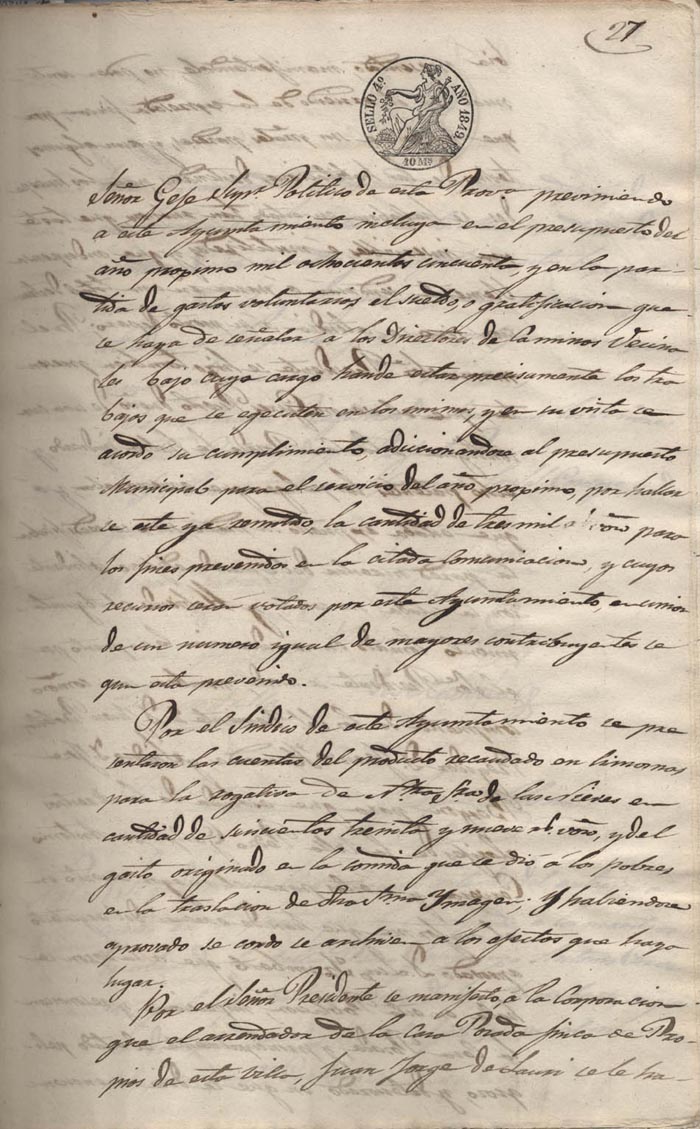 27
SELLO 4º AÑO 1849.
40 Ms
Señor Gefe Supr. Politico de esta Prova. previniendo
a este Ayuntamiento incluya en el presupuesto del
año proximo mil ochocientos cincuenta y en la par-
tida de gastos voluntarios el sueldo, o gratificacion que
se haya de señalar a los Directores de Caminos Vecina
les bajo cuyo cargo hande estar precisamente los tra
bajos que se egecuten en los mismos, y en su vista se
acordo su cumplimiento, adiccionandose al presupuesto
Municipal para el servicio del año proximo, por hallar
se este ya remitido, la cantidad de tres mil rs. von para
los fines prevenidos en la citada comunicacion, y cuyos
recursos seran votados por este Ayuntamiento, en union
de un numero igual de mayores contribuyentes se
gun esta prevenido.
Por el Sindico de este Ayuntamiento se pre
sentaron las cuentas del producto recaudado en limosnas
para la rogativa de Ntra. Sra. de las Nieves en
cantidad de seiscientos treinta y nueve rs. von, y del
gasto originado en la comida que se dio á los pobres
en la traslacion de dha Sma Ymagen; y habiendose
aprovado se cordo se archiven a los efectos que haya
lugar.
Por el Señor Presidente se manifesto, a la Corporacion
que el arrendador de la casa Posada finca de Pro-
pios de esta villa, Juan Jorge de se le ha-